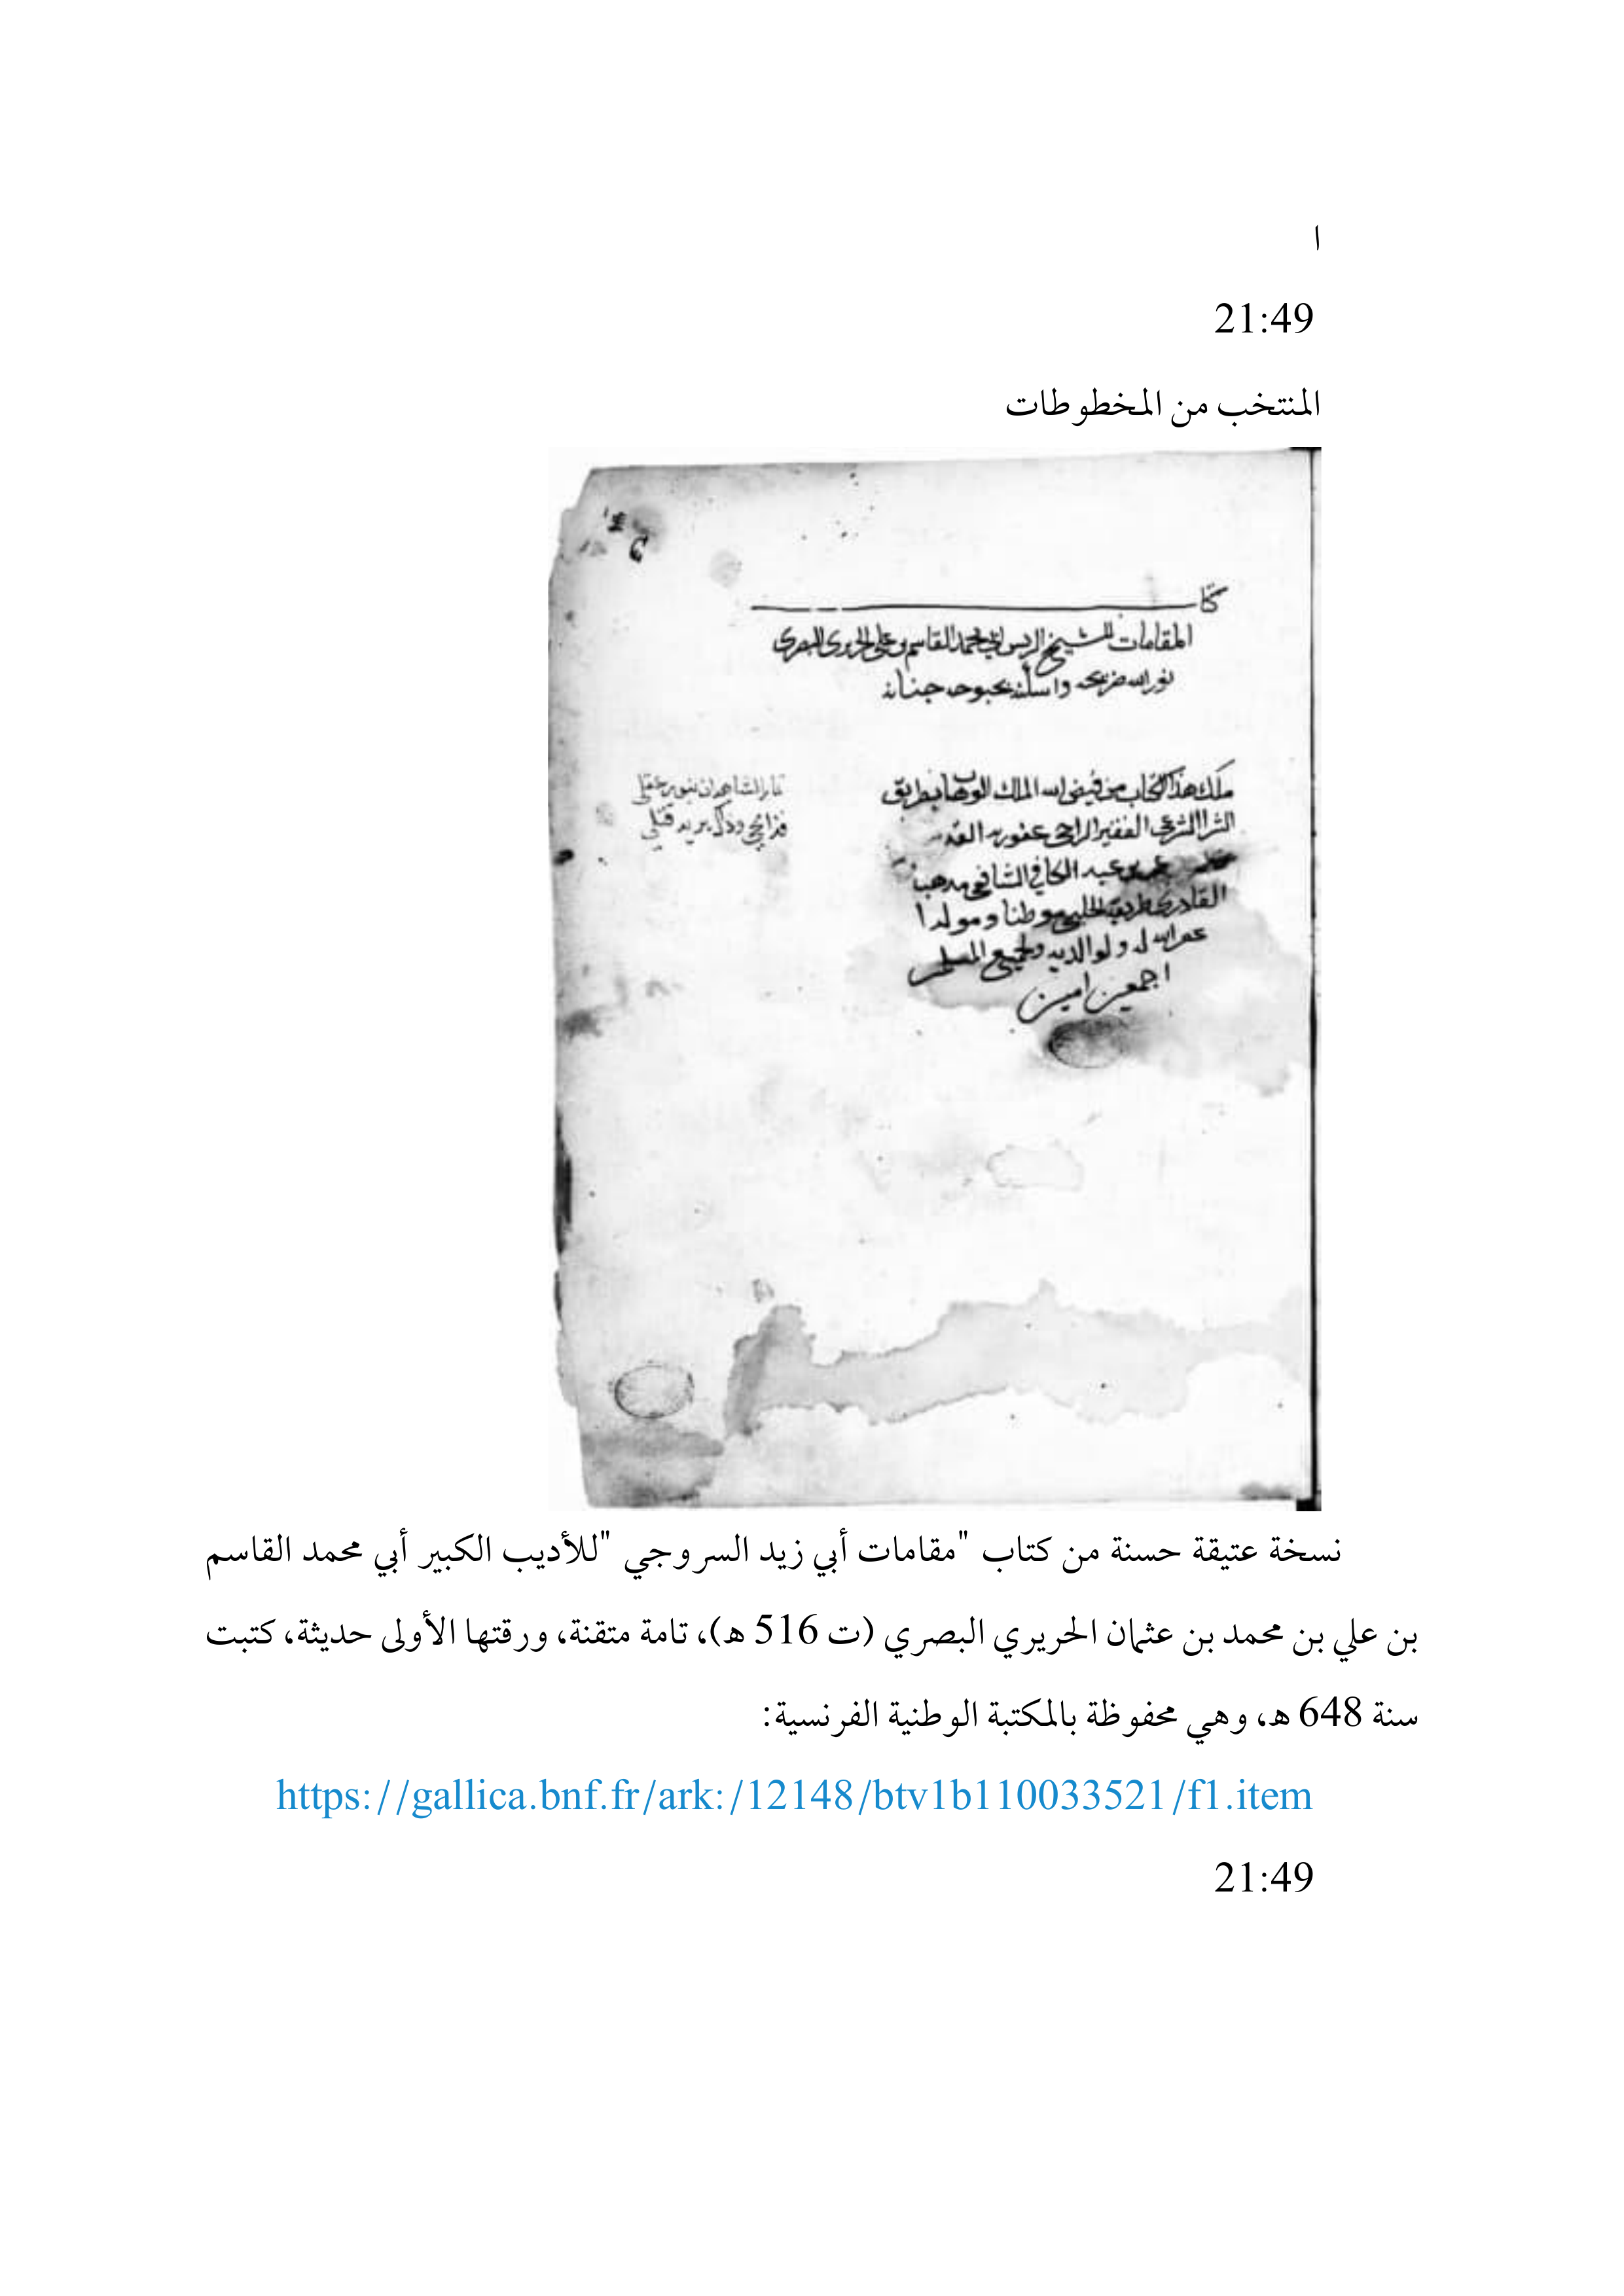 ا
21:49
المنتخب من المخطوطات
كتا
المقامات للشيخ الريس ابي محمد القاسم بن علي الحريري البصري
نور الله ضريحه واسكنه بحبوحه جنانه
ملك هذا الكتاب من فيض الله الملك الوهاب بطريق
الشرا الشرعي الفقير الراجي عفو ربه
عمر بن عبد الكافي الشافعي مذهبا
القادري طريقة الحلبي موطنا ومولدا
غفر الله له ولوالديه ولجميع المسلمين
اجمعين امين
نسخة عتيقة حسنة من كتاب "مقامات أبي زيد السروجي "للأديب الكبير أبي محمد القاسم
بن علي بن محمد بن عثمان الحريري البصري (ت 516 هـ)، تامة متقنة، ورقتها الأولى حديثة، كتبت
سنة 648 هـ، وهي محفوظة بالمكتبة الوطنية الفرنسية:
https://gallica.bnf.fr/ark:/12148/btv1b110033521/f1.item
21:49